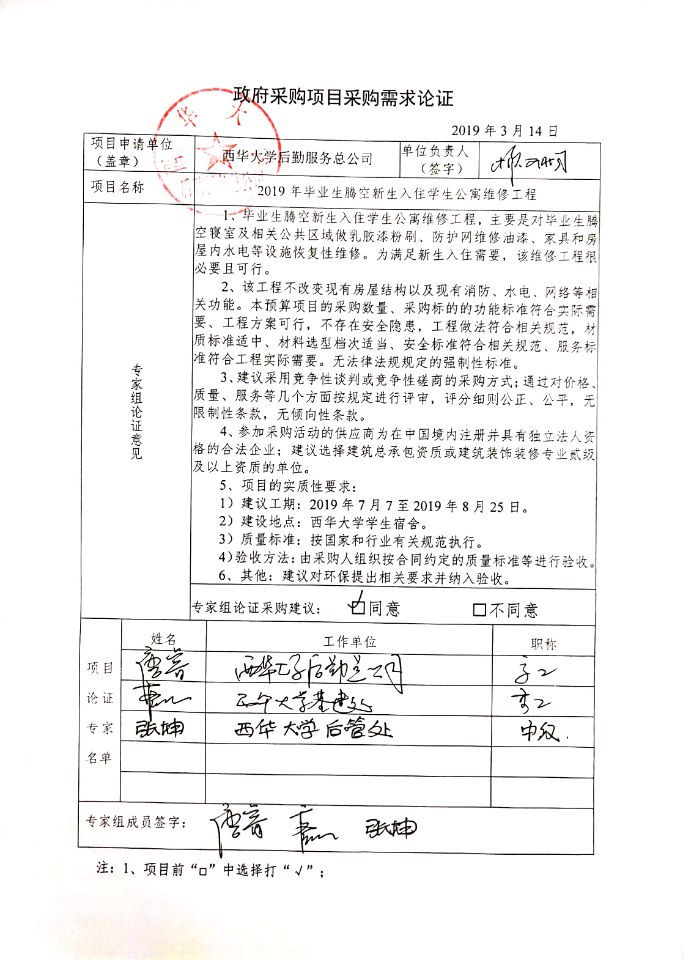 政府采购项目采购需求论证
2019 年 3 月 14 日
项目申请单位
（盖章）
西华大学后勤服务总公司
单位负责人
（签字）
项目名称
2019 年毕业生腾空新生入住学生公寓维修工程
专家组论证意见
1、毕业生腾空新生入住学生公寓维修工程，主要是对毕业生腾
空寝室及相关公共区域做乳胶漆粉刷、防护网维修油漆、家具和房
屋内水电等设施恢复性维修。为满足新生入住需要，该维修工程很
必要且可行。
2、该工程不改变现有房屋结构以及现有消防、水电、网络等相
关功能。本预算项目的采购数量、采购标的的功能标准符合实际需
要、工程方案可行，不存在安全隐患，工程做法符合相关规范，材
质标准适中、材料选型档次适当、安全标准符合相关规范、服务标
准符合工程实际需要。无法律法规规定的强制性标准。
3、建议采用竞争性谈判或竞争性磋商的采购方式；通过对价格、
质量、服务等几个方面按规定进行评审，评分细则公正、公平，无
限制性条款，无倾向性条款。
4、参加采购活动的供应商为在中国境内注册并具有独立法人资
格的合法企业；建议选择建筑总承包资质或建筑装饰装修专业贰级
及以上资质的单位。
5、项目的实质性要求：
1）建议工期：2019 年 7 月 7 至 2019 年 8 月 25 日。
2）建设地点：西华大学学生宿舍。
3）质量标准：按国家和行业有关规范执行。
4)验收方法：由采购人组织按合同约定的质量标准等进行验收。
6、其他：建议对环保提出相关要求并纳入验收。
专家组论证采购建议： ☑同意 □不同意
项目论证专家名单
姓名 工作单位 职称
唐蓉 西华大学后勤总公司 高工
西华大学基建处 高工
张坤 西华大学后管处 中级.
专家组成员签字： 唐蓉 张坤
注：1、项目前“□”中选择打“√”；